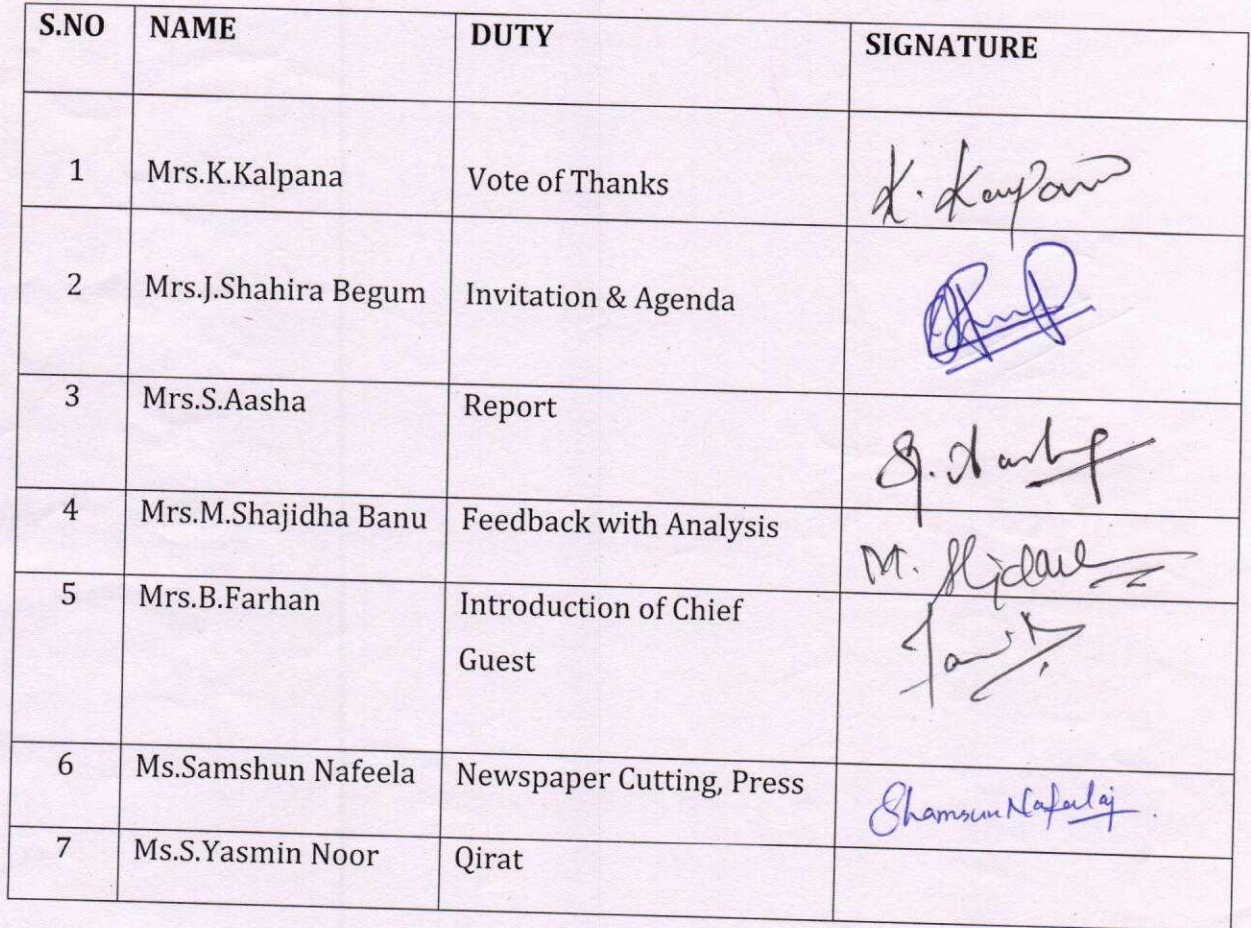 S.NO NAME DUTY SIGNATURE
1 Mrs.K.Kalpana Vote of Thanks K. Kalpana
2 Mrs.J.Shahira Begum Invitation & Agenda
3 Mrs.S.Aasha Report S. Aasha
4 Mrs.M.Shajidha Banu Feedback with Analysis M.
5 Mrs.B.Farhan Introduction of Chief
Guest
6 Ms.Samshun Nafeela Newspaper Cutting, Press
7 Ms.S.Yasmin Noor Qirat